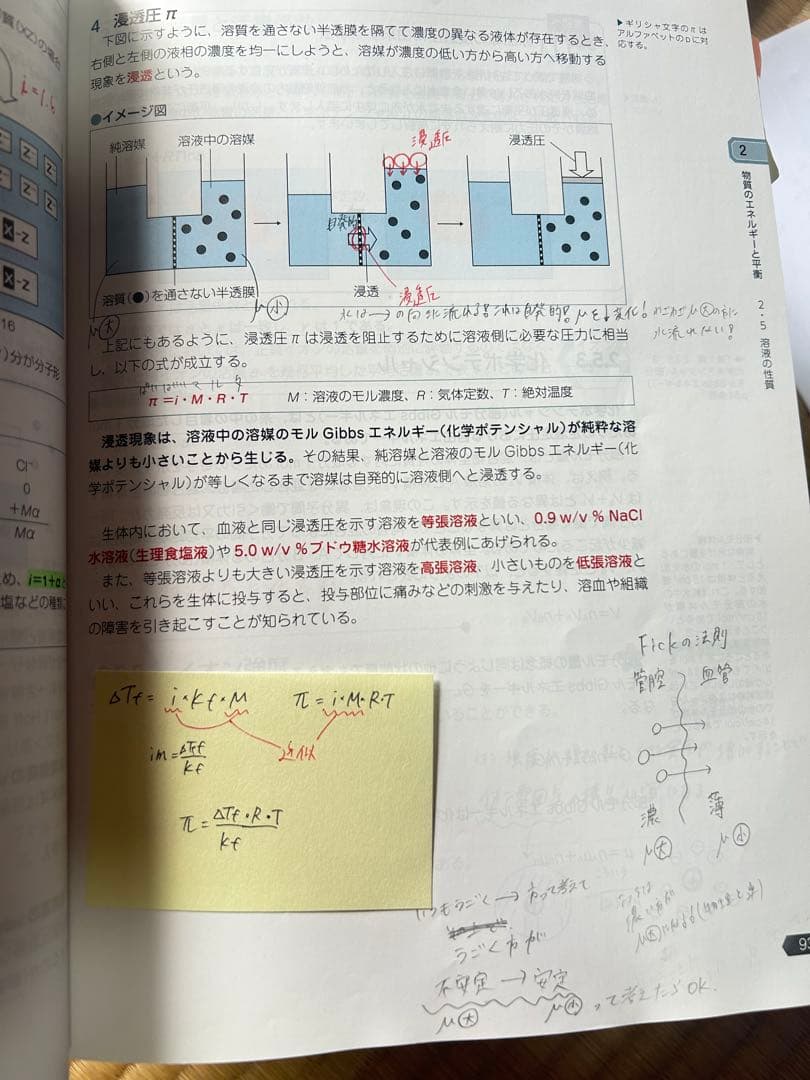 4 浸透圧 π
下図に示すように、溶質を通さない半透膜を隔てて濃度の異なる液体が存在するとき、
右側と左側の液相の濃度を均一にしようと、溶媒が濃度の低い方から高い方へ移動する
現象を浸透という。
▶ギリシャ文字のπは
アルファベットのpに対
応する。
●イメージ図
純溶媒 溶液中の溶媒
浸透圧
浸透圧
自発的
溶質(●)を通さない半透膜
浸透
浸透圧
μ大
μ小
上記にもあるように、浸透圧πは浸透を阻止するために溶液側に必要な圧力に相当
し、以下の式が成立する。
π=i・M・R・T M：溶液のモル濃度、R：気体定数、T：絶対温度
浸透現象は、溶液中の溶媒のモル Gibbs エネルギー(化学ポテンシャル)が純粋な溶
媒よりも小さいことから生じる。その結果、純溶媒と溶液のモル Gibbs エネルギー(化
学ポテンシャル)が等しくなるまで溶媒は自発的に溶液側へと浸透する。
生体内において、血液と同じ浸透圧を示す溶液を等張溶液といい、0.9 w/v % NaCl
水溶液(生理食塩液)や 5.0 w/v %ブドウ糖水溶液が代表例にあげられる。
また、等張溶液よりも大きい浸透圧を示す溶液を高張溶液、小さいものを低張溶液と
いい、これらを生体に投与すると、投与部位に痛みなどの刺激を与えたり、溶血や組織
の障害を引き起こすことが知られている。
ΔTf = i・kf・M π = i・M・R・T
近似
im = ΔTf/kf
π = ΔTf・R・T/kf
Fickの法則
管腔 血管
濃 薄
μ大 μ小
うごく方が
不安定 → 安定
μ大 μ小 って考えたらOK.
2
物質のエネルギーと平衡
2・5 溶液の性質
93
i=1.6
Z
X-Z
X-Z
16
)分が分子形
Cl⁻
0
+Mα
Mα
i=1+α
塩などの種類